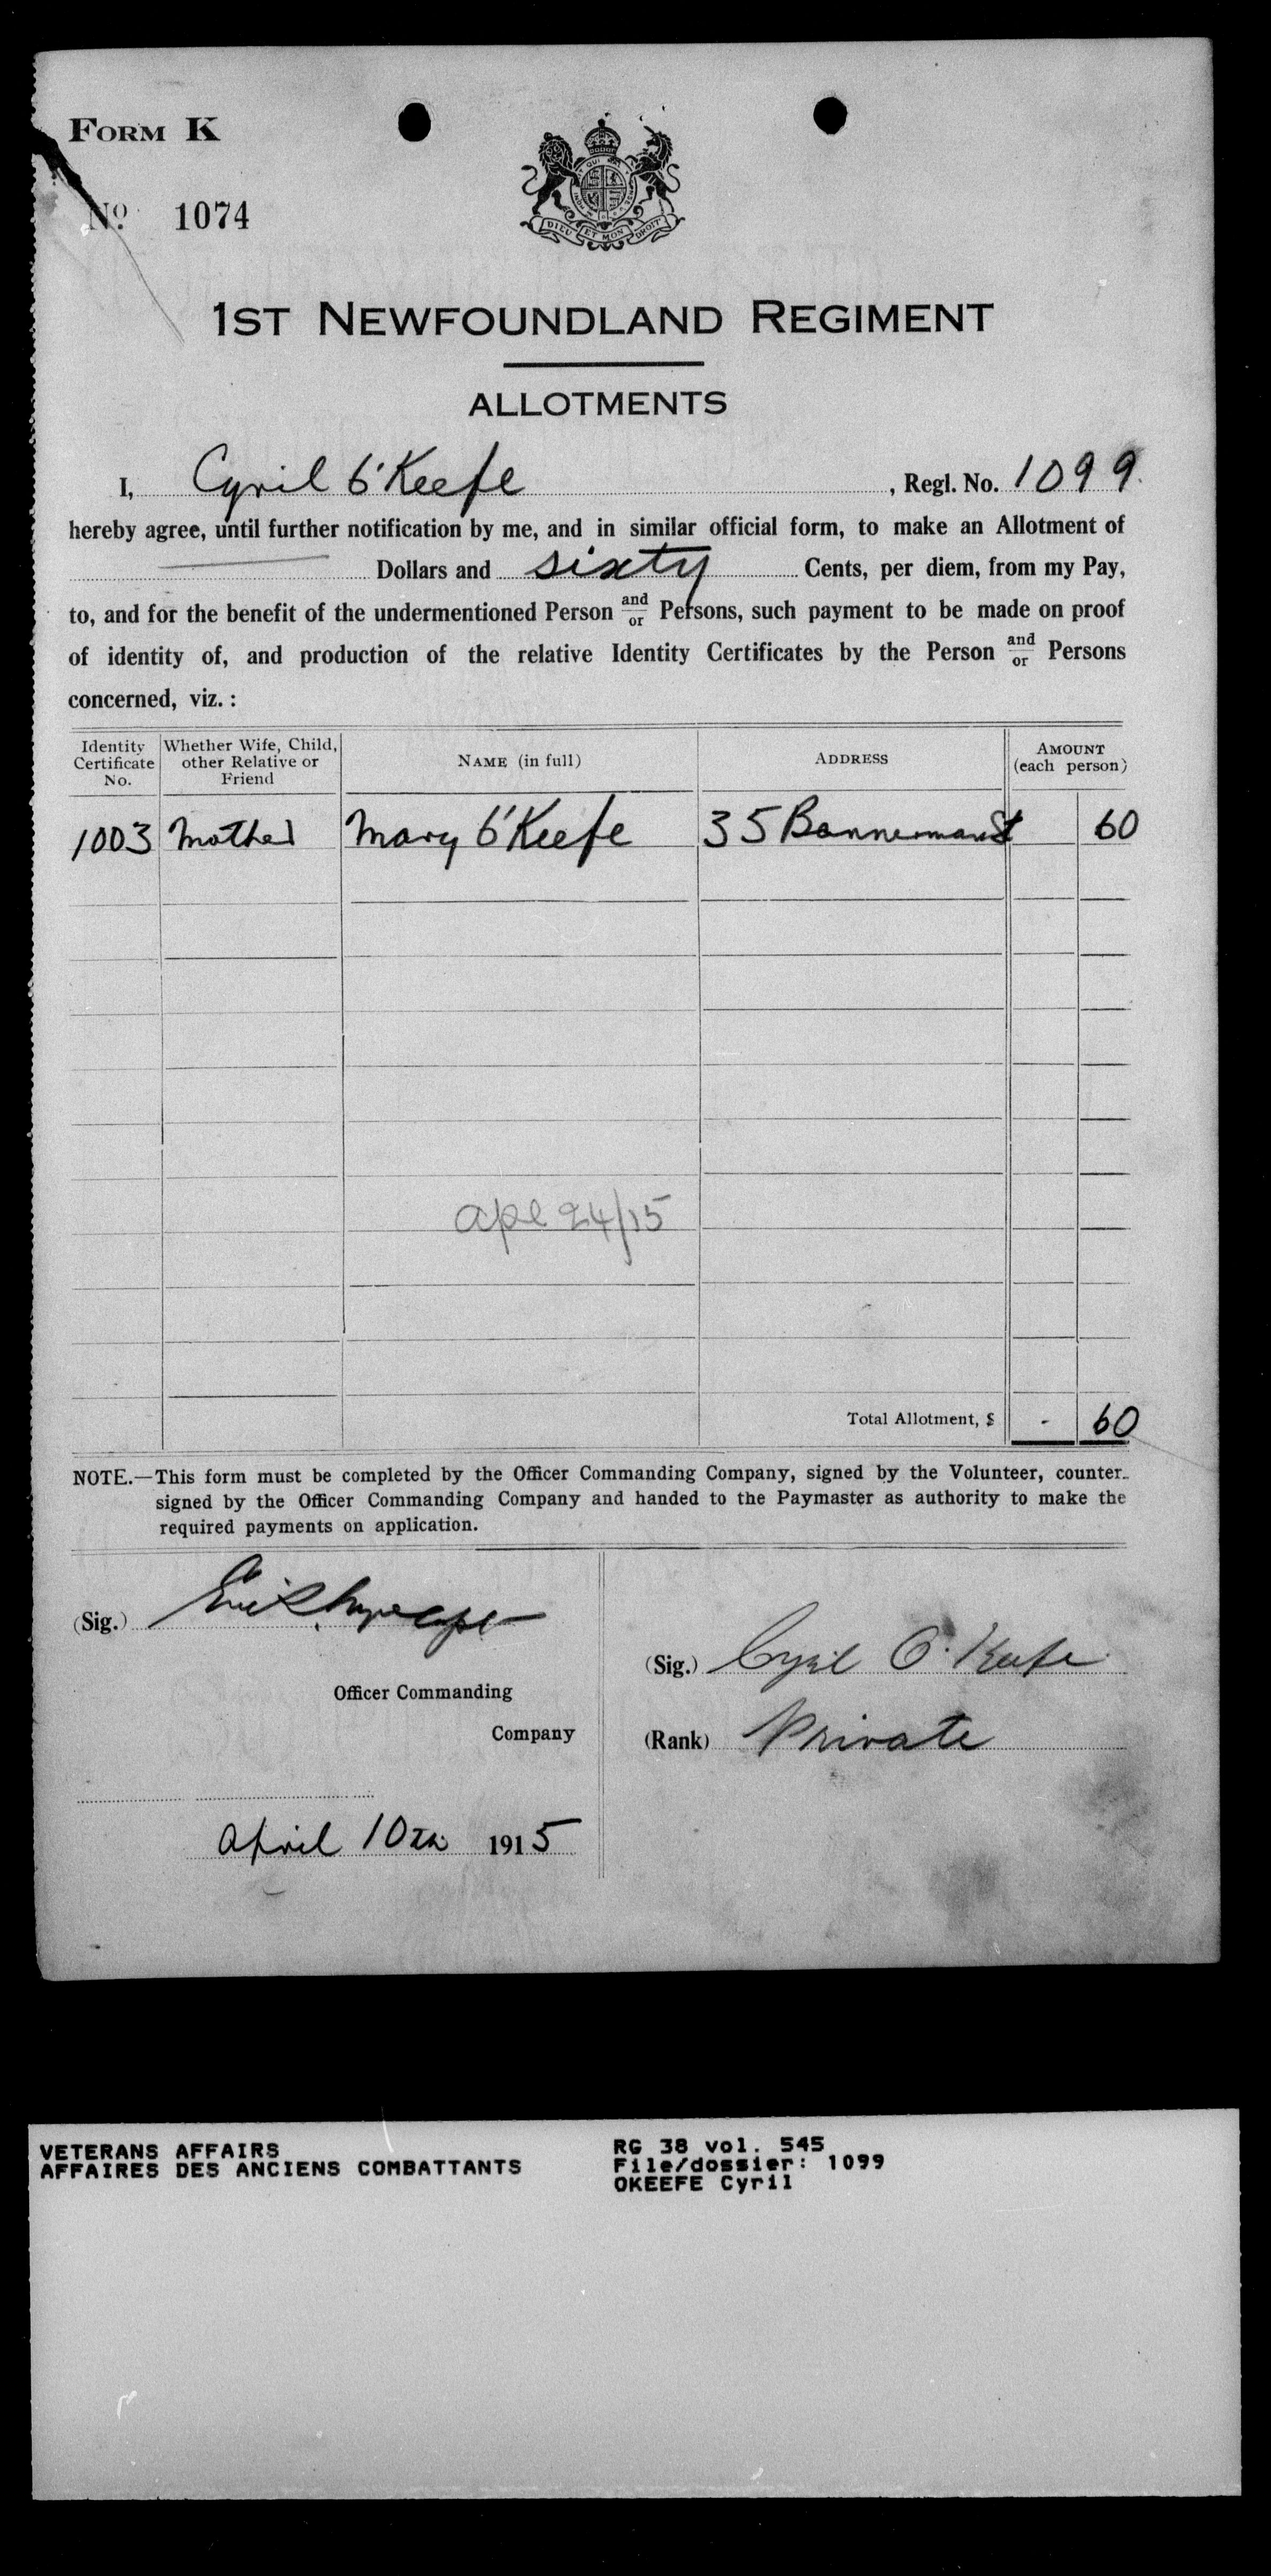 FORM K
No. 1074
DIEU ET MON DROIT
1ST NEWFOUNDLAND REGIMENT
ALLOTMENTS
I, Cyril O'Keefe, Regl. No. 1099
hereby agree, until further notification by me, and in similar official form, to make an Allotment of
Dollars and sixty Cents, per diem, from my Pay,
to, and for the benefit of the undermentioned Person and/or Persons, such payment to be made on proof
of identity of, and production of the relative Identity Certificates by the Person and/or Persons
concerned, viz.:
Identity Certificate No. Whether Wife, Child, other Relative or Friend NAME (in full) ADDRESS AMOUNT (each person)
1003 Mother Mary O'Keefe 35 Bannerman St 60
Apl 24/15
Total Allotment, $ - 60
NOTE.—This form must be completed by the Officer Commanding Company, signed by the Volunteer, counter-
signed by the Officer Commanding Company and handed to the Paymaster as authority to make the
required payments on application.
(Sig.)
Officer Commanding
Company
April 10th 1915
(Sig.) Cyril O'Keefe
(Rank) Private
VETERANS AFFAIRS
AFFAIRES DES ANCIENS COMBATTANTS
RG 38 vol. 545
File/dossier: 1099
OKEEFE Cyril